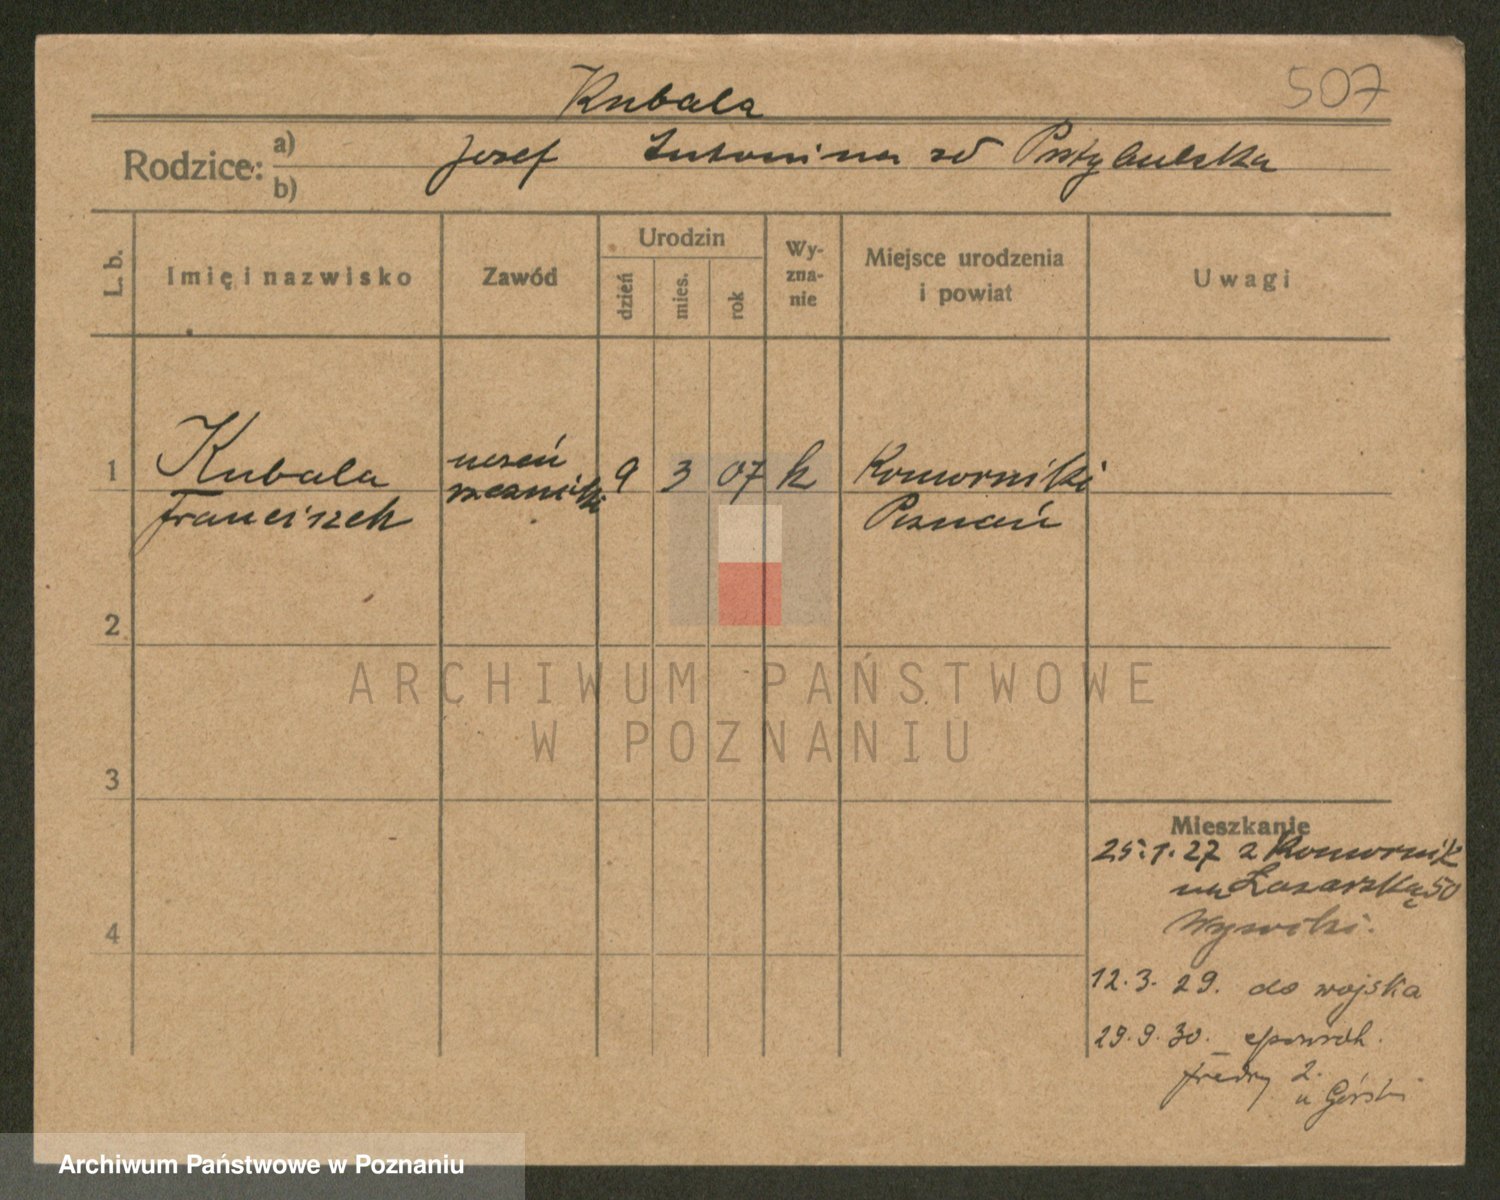 507
Kubala
Rodzice: a) b)
Josef Antonina zd Przybulska
L. b.
Imię i nazwisko
Zawód
Urodzin
dzień
mies.
rok
Wy-
zna-
nie
Miejsce urodzenia
i powiat
Uwagi
1
Kubala
Franciszek
uczeń
rzeźnicki
9 3 07 k
Komorniki
Poznań
2
3
4
ARCHIWUM PAŃSTWOWE
W POZNANIU
Mieszkanie
25.1.27 z Komornik
na Łazarską 50
12.3.29. do wojska
29.9.30.
Fredry 2.
u Górski
Archiwum Państwowe w Poznaniu